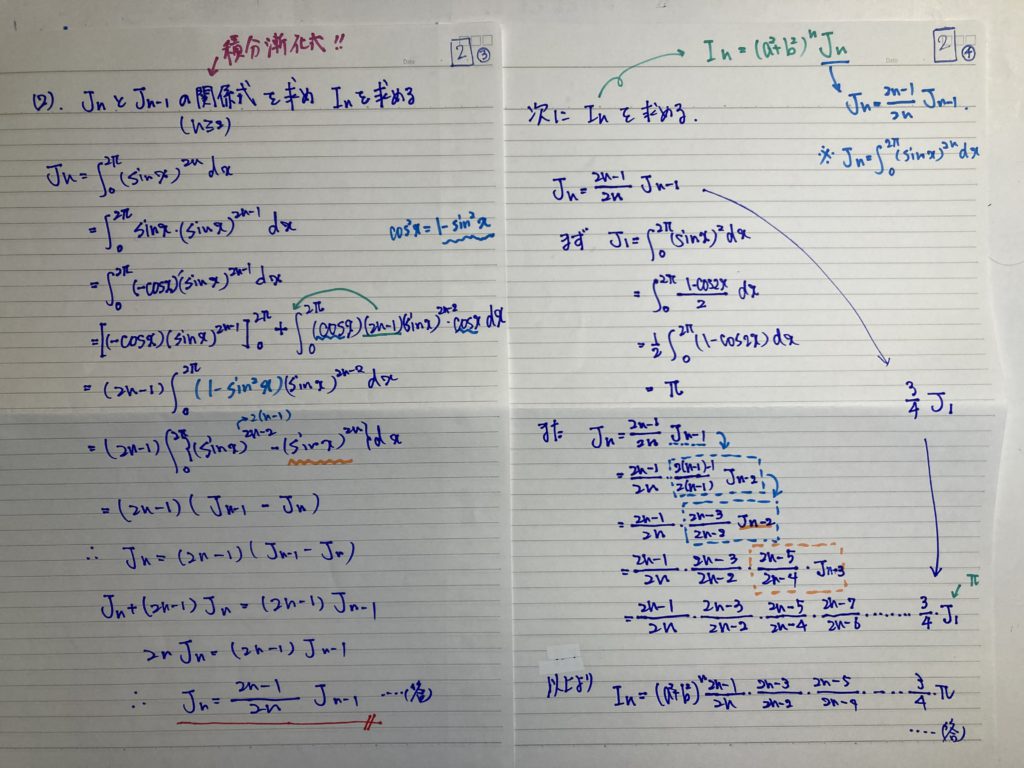 積分漸化式!!
2 ③
(2). JnとJn-1の関係式を求め Inを求める
(n≥2)
Jn = ∫₀^{2π} (sinx)^{2n} dx
= ∫₀^{2π} sinx·(sinx)^{2n-1} dx
cos²x = 1-sin²x
= ∫₀^{2π} (-cosx)'(sinx)^{2n-1} dx
= [(-cosx)(sinx)^{2n-1}]₀^{2π} + ∫₀^{2π} (cosx)(2n-1)(sinx)^{2n-2}·cosx dx
= (2n-1) ∫₀^{2π} (1-sin²x)(sinx)^{2n-2} dx
2(n-1)
= (2n-1) ∫₀^{2π} {(sinx)^{2n-2} - (sinx)^{2n}} dx
= (2n-1)(Jn-1 - Jn)
∴ Jn = (2n-1)(Jn-1 - Jn)
Jn + (2n-1)Jn = (2n-1)Jn-1
2n Jn = (2n-1) Jn-1
∴ Jn = \frac{2n-1}{2n} Jn-1 ····(答)
In = (a²+b²)^n Jn
Date
2 ④
Jn = \frac{2n-1}{2n} Jn-1.
次に In を求める.
※ Jn = ∫₀^{2π} (sinx)^{2n} dx
Jn = \frac{2n-1}{2n} Jn-1
まず J1 = ∫₀^{2π} (sinx)² dx
= ∫₀^{2π} \frac{1-cos2x}{2} dx
= \frac{1}{2} ∫₀^{2π} (1-cos2x) dx
= π
\frac{3}{4} J1
また Jn = \frac{2n-1}{2n} Jn-1
= \frac{2n-1}{2n} · \frac{2(n-1)-1}{2(n-1)} Jn-2
= \frac{2n-1}{2n} · \frac{2n-3}{2n-2} Jn-2
= \frac{2n-1}{2n} · \frac{2n-3}{2n-2} · \frac{2n-5}{2n-4} · Jn-3
π
= \frac{2n-1}{2n} · \frac{2n-3}{2n-2} · \frac{2n-5}{2n-4} · \frac{2n-7}{2n-6} ········ \frac{3}{4} · J1
以上より In = (a²+b²)^n \frac{2n-1}{2n} · \frac{2n-3}{2n-2} · \frac{2n-5}{2n-4} · --- · \frac{3}{4} · π
····(答)